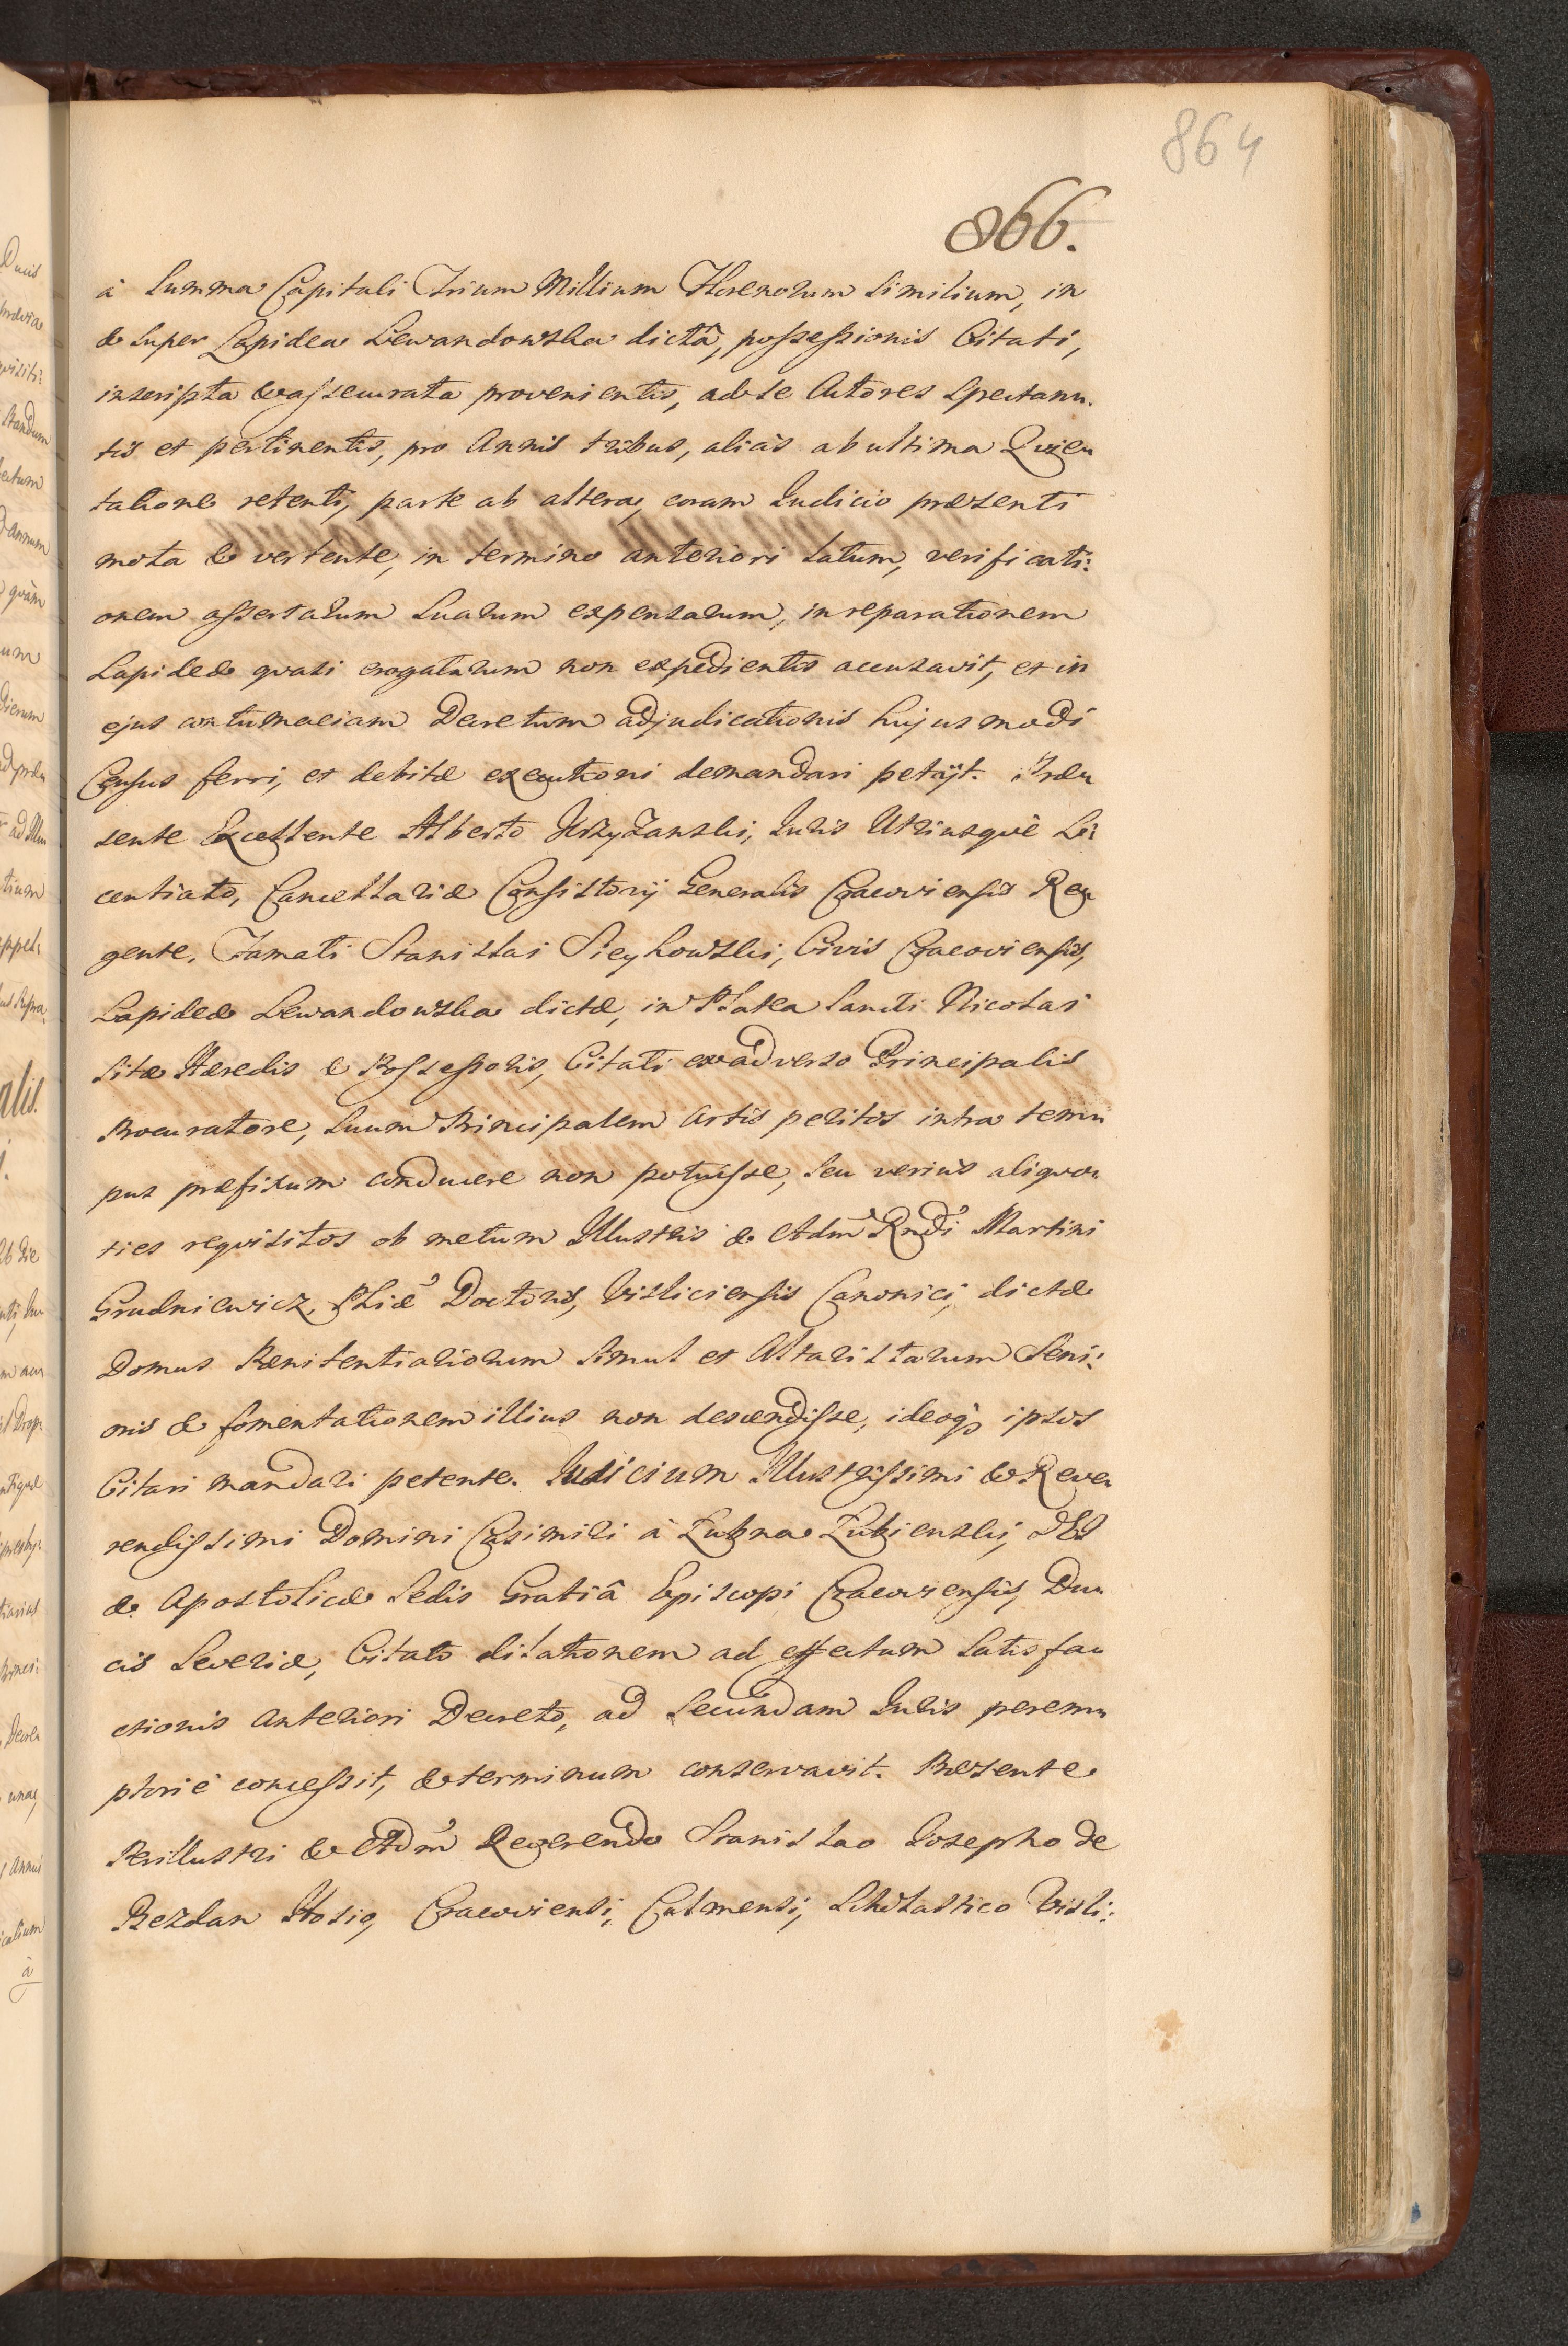 864
866.
à Summa Capitali Trium Millium Florenorum Similium, in
& Super Lapidea Lewandowska dictâ, possessionis Citati,
inscripta & assecurata provenientis, ad se Actores Spectan:
tis et pertinentis, pro Annis tribus, aliàs ab ultima Quie:
tatione retenti, parte ab altera, coram Iudicio præsenti
mota & vertente, in termino anteriori latum, verificati:
onem assertarum Suarum expensarum, in reparationem
Lapideæ quasi erogatarum non expedientis accusavit, et in
ejus contumaciam Decretum adjudicationis hujusmodi
Census ferri, et debitæ executioni demandari petijt. Præ:
sente Excellente Alberto Krzyżanski, Iuris Utriusquè Li:
centiato, Cancellariæ Consistorij Generalis Cracoviensis Re:
gente, Famati Stanislai Sieykowski, Civis Cracoviensis,
Lapideæ Lewandowska dictæ, in Platea Sancti Nicolai
Sitæ Hæredis & Possessoris, Citati ex adverso Principalis
Procuratore, Suum Principalem Artis peritos intra tem:
pus præfixum conducere non potuisse, Seu veriùs aliquo:
ties requisitos ob metum Illustris & Adm Rndi Martini
Grudniewicz, Phiæ Doctoris, Visliciensis Canonici, dictæ
Domus Pœnitentiariorum Simul et Altaristarum Seni:
oris & fomentationem illius non descendisse, ideoq ipsos
Citari mandari petente. Iudicium Illustrissimi & Reve:
rendissimi Domini Casimiri à Łubna Łubienski, DEI
& Apostolicæ Sedis Gratiâ Episcopi Cracoviensis, Du:
cis Severiæ, Citato dilationem ad effectum Satisfa:
ctionis Anteriori Decreto, ad Secundam Iuris perem:
ptoriè concessit, & terminum conservavit. Præsente
Perillustri & Adm Reverendo Stanislao Iosepho de
Bezdan Hosio, Cracoviensi, Culmensi, Scholastico Visli: